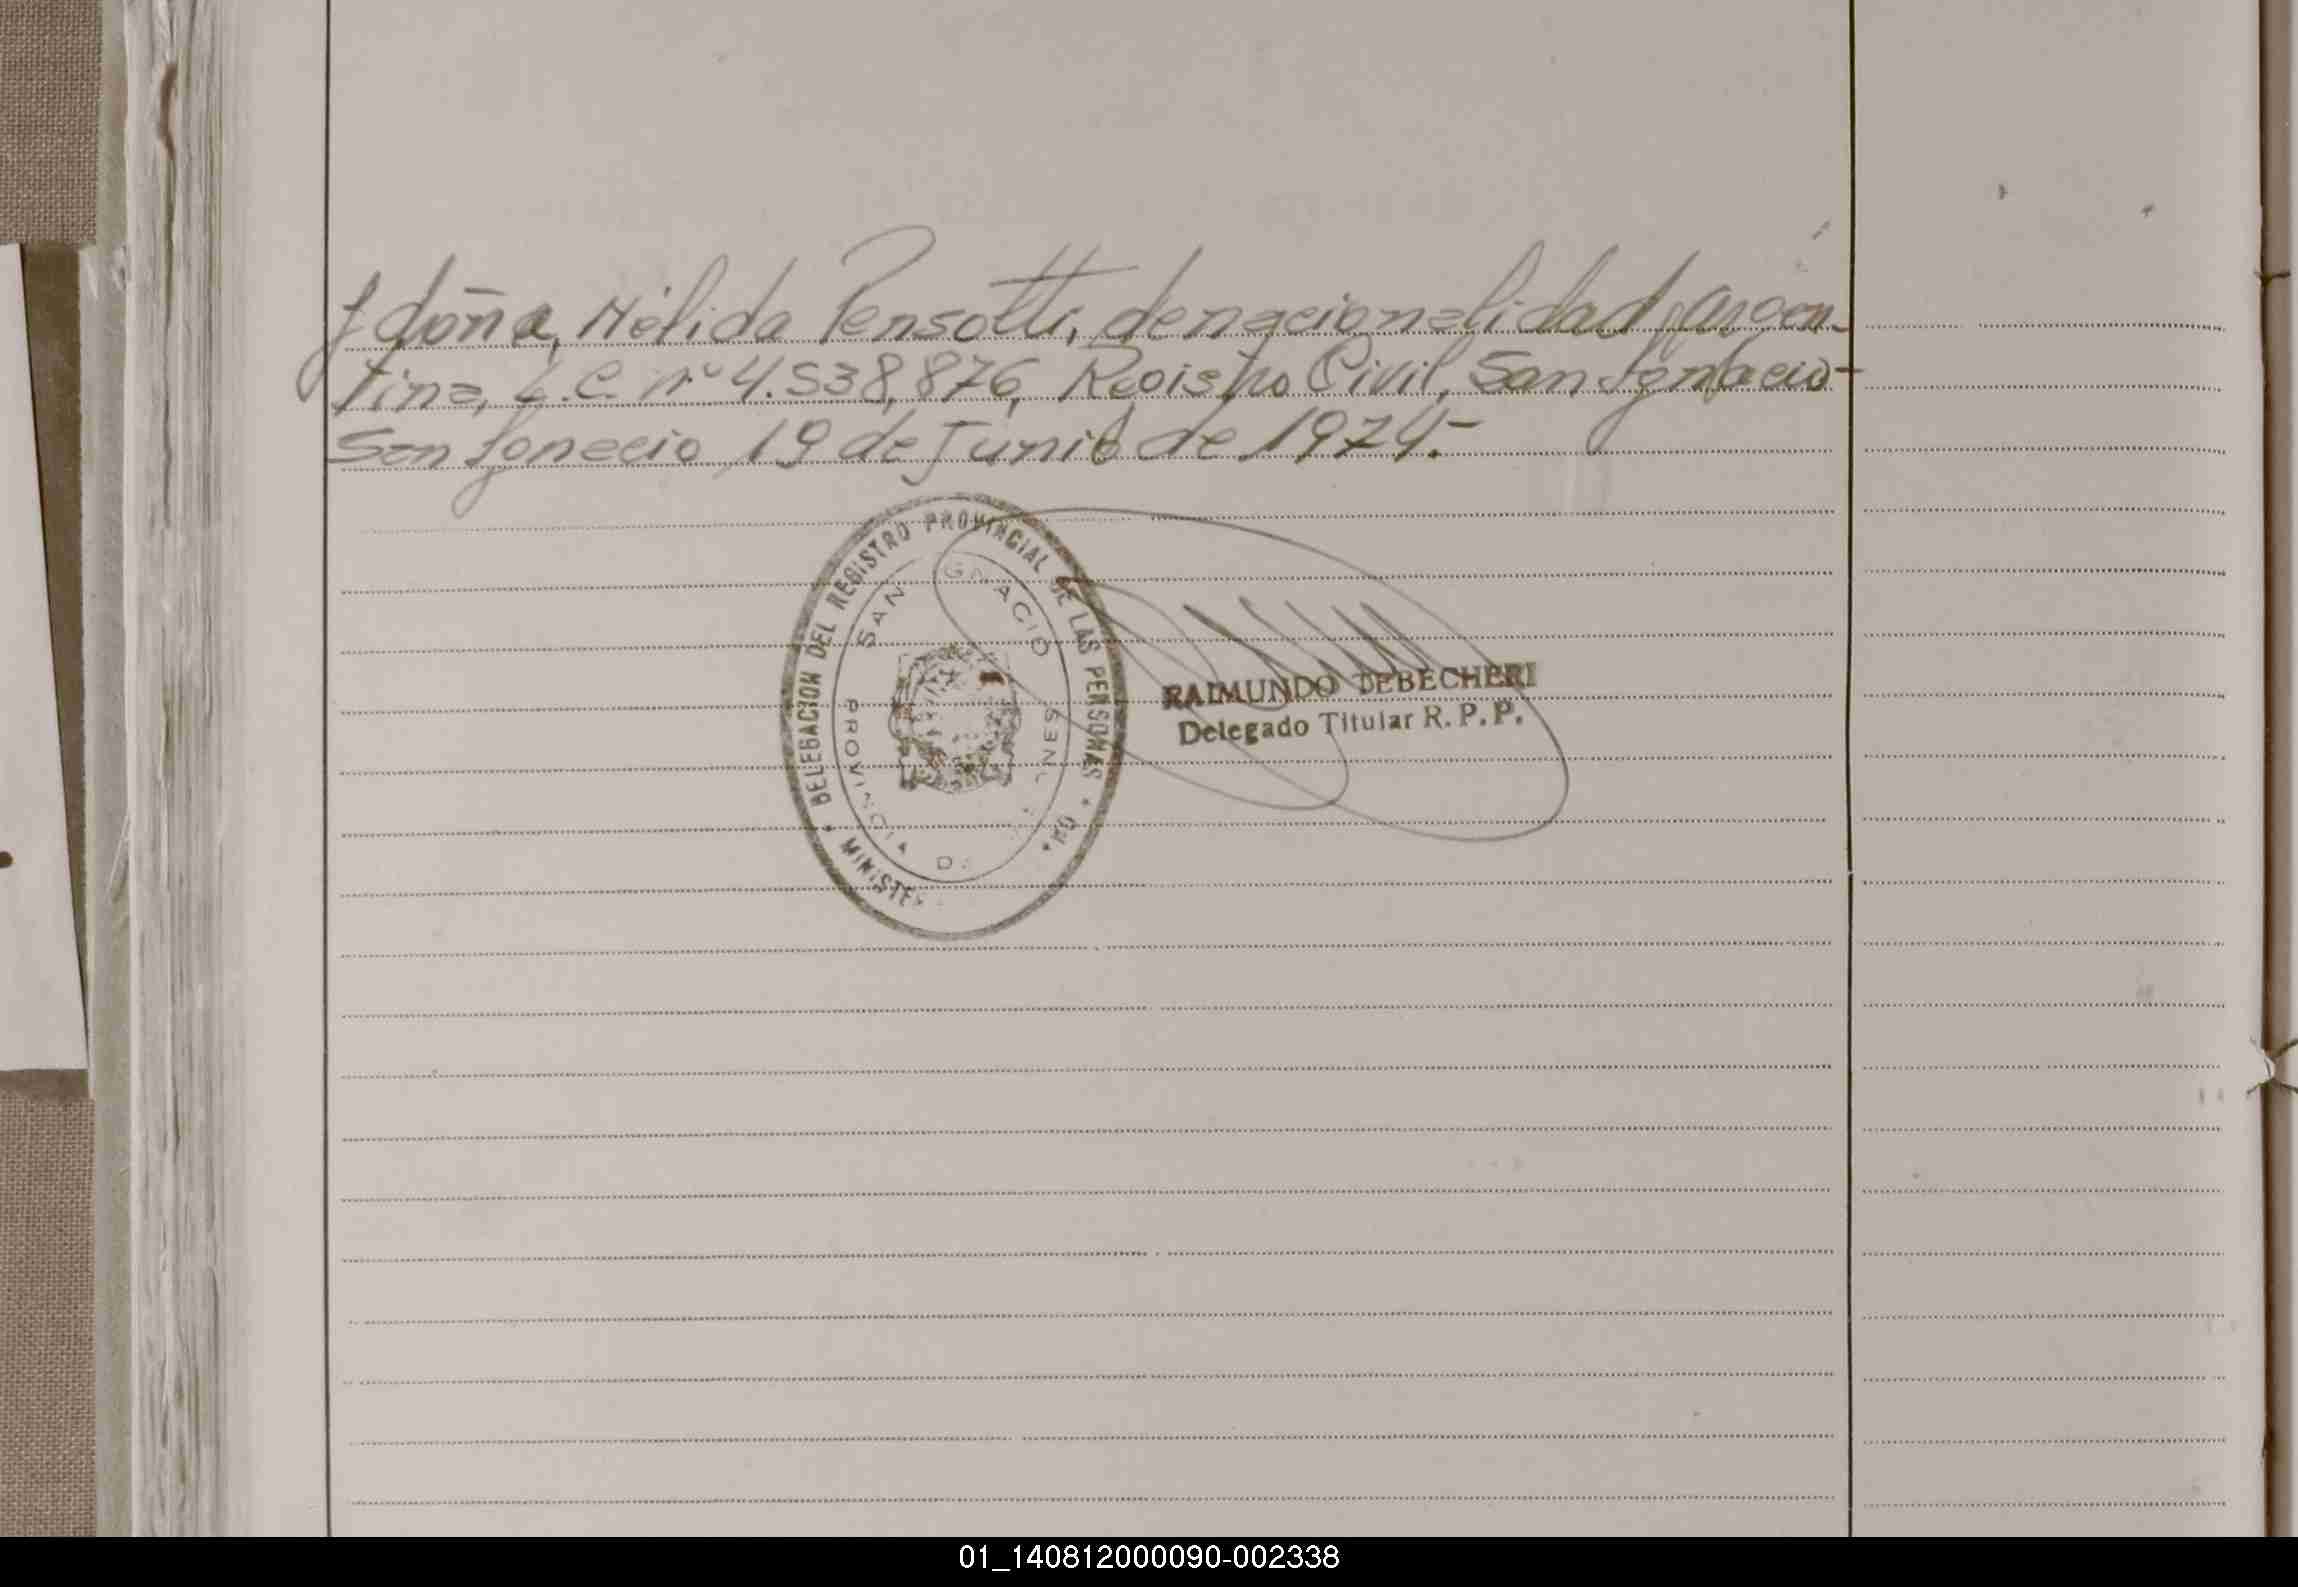 y doña, Nélida Pensotti, de nacionalidad, argen-
tina, L.C. nº 4.538,876, Registro Civil, San Ignacio-
San Ignacio, 19 de Junio de 1974.-
DELEGACION DEL REGISTRO PROVINCIAL DE LAS PERSONAS
SAN IGNACIO
PROVINCIA DE
RAIMUNDO DEBECHERI
Delegado Titular R. P. P.
01_140812000090-002338